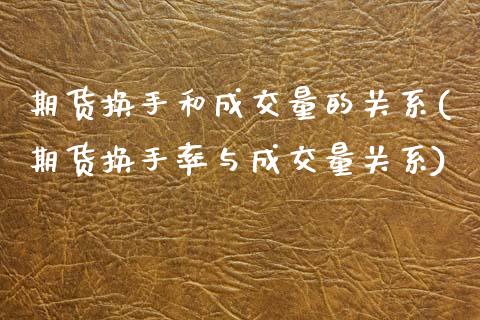 期货换手和成交量的关系(
期货换手率与成交量关系)